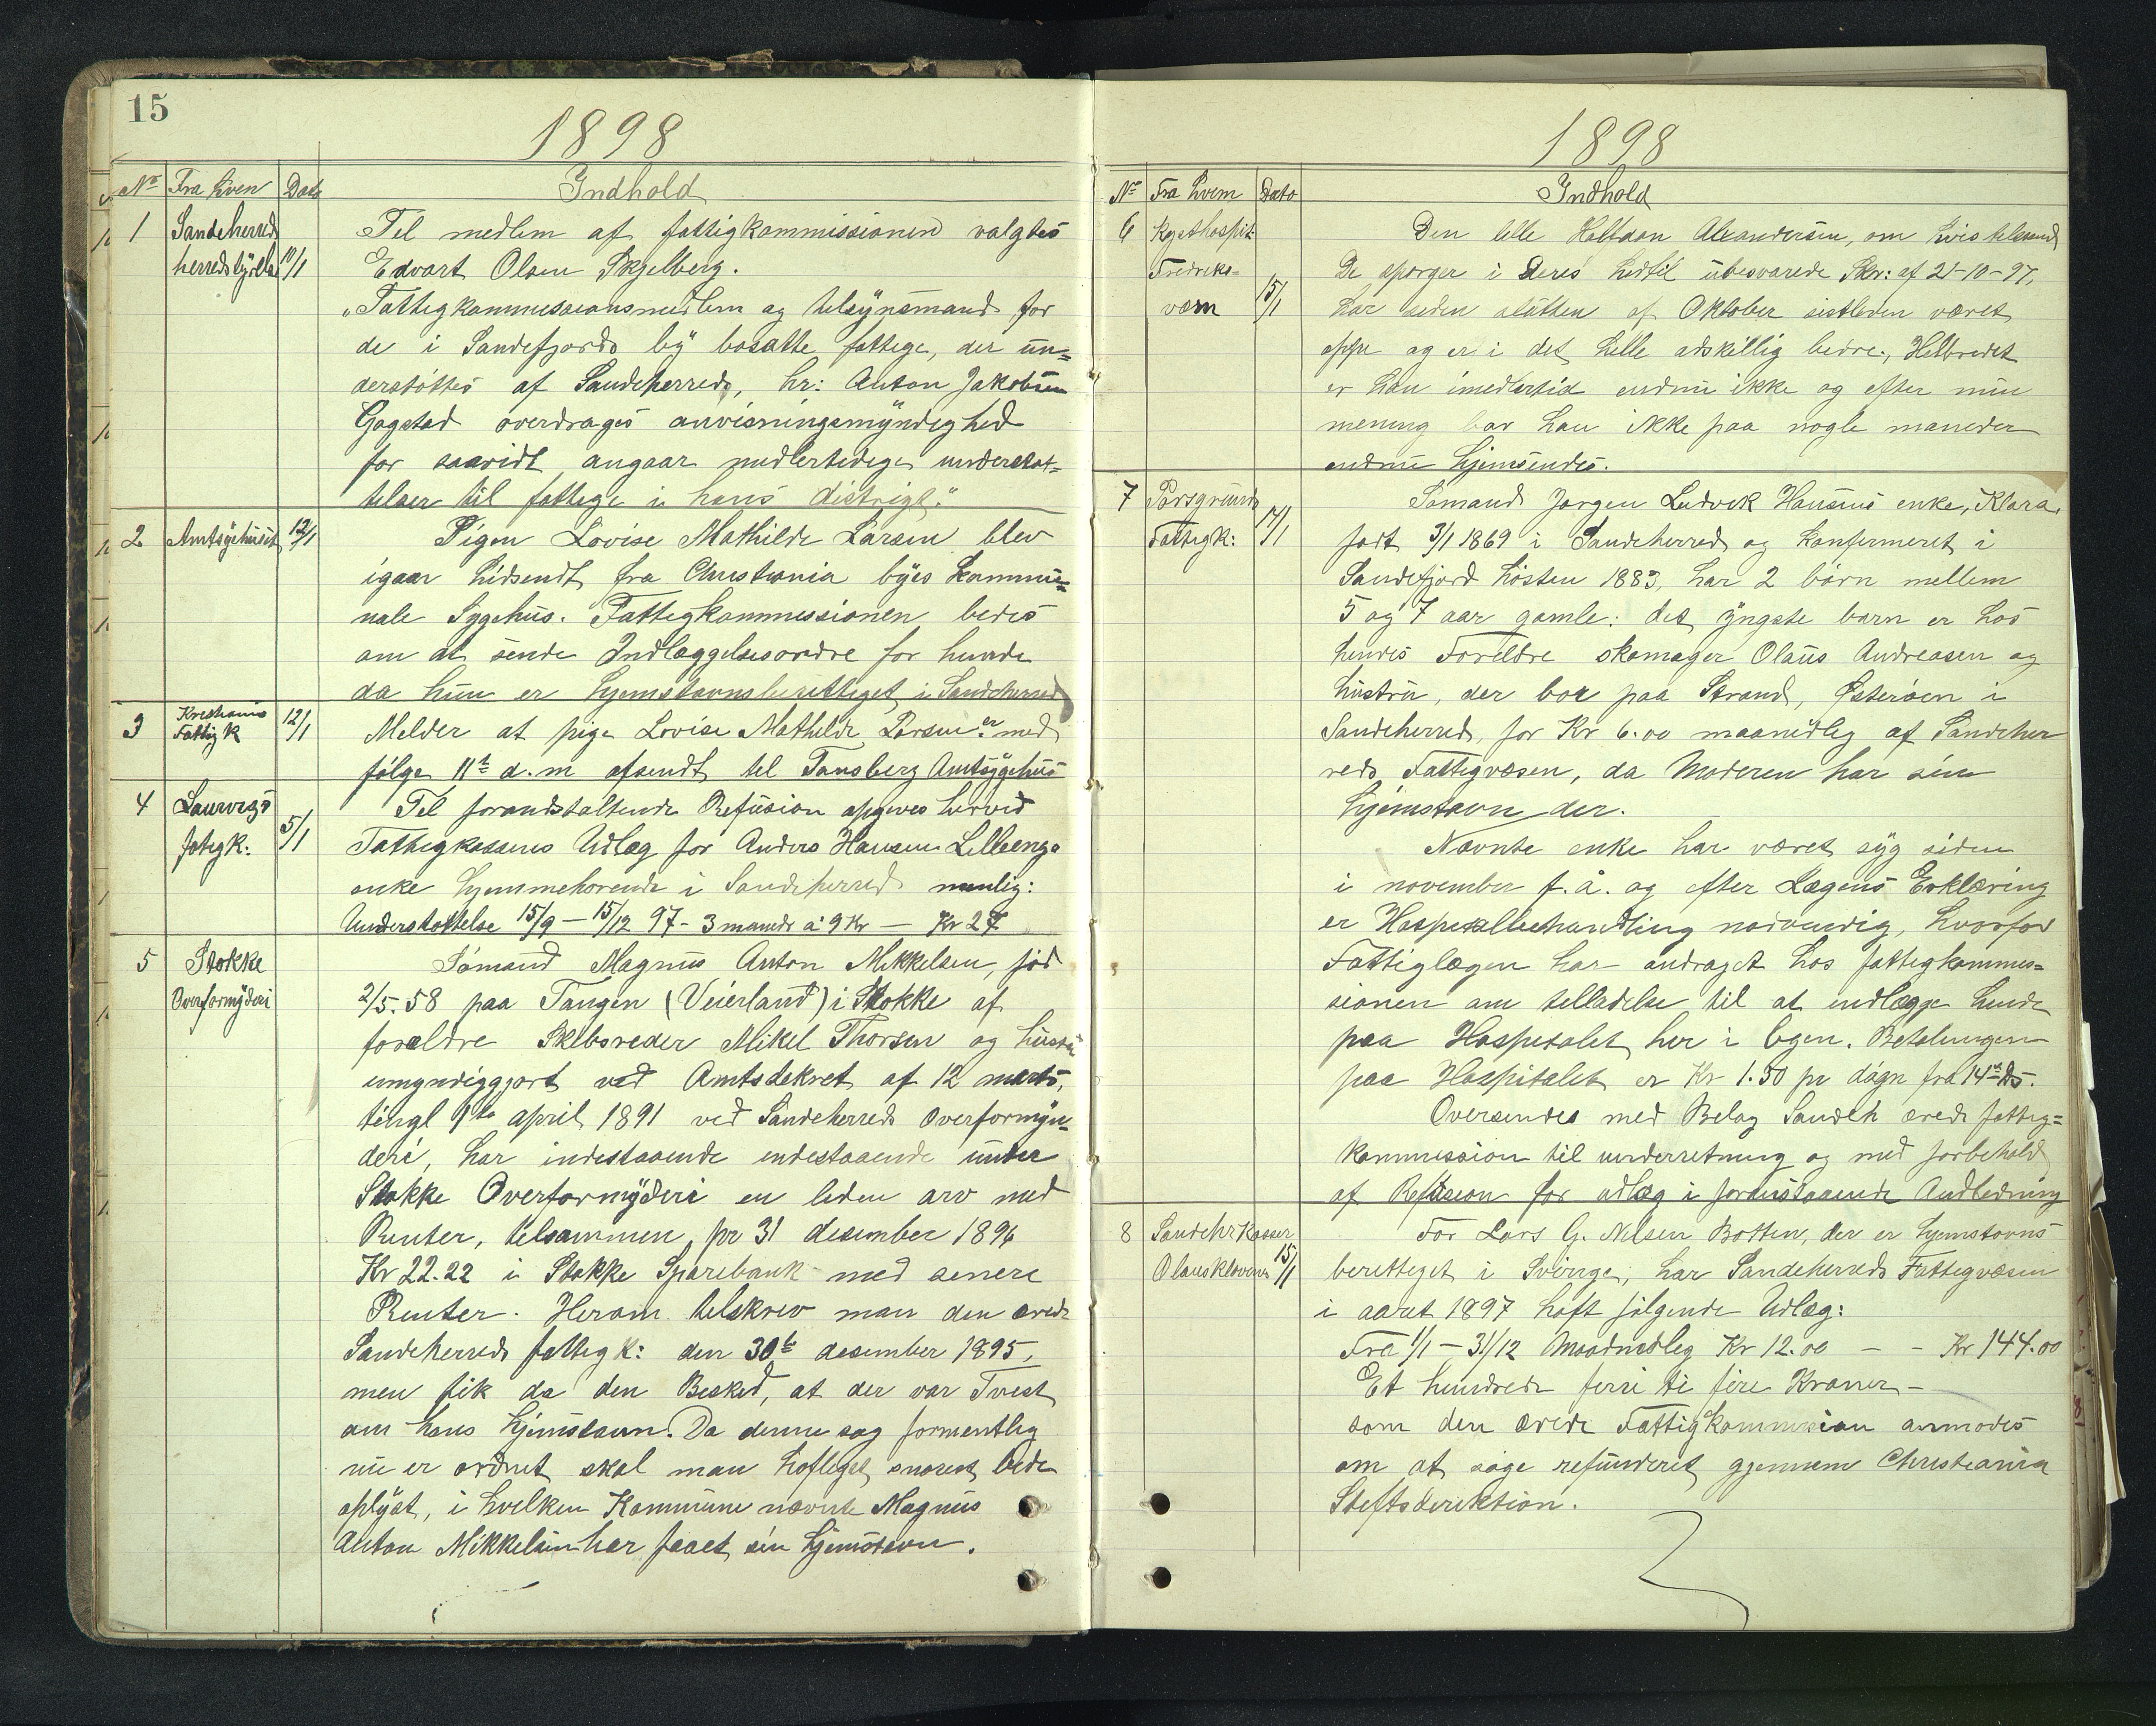 15
1898
No Fra Hvem Dato Indhold
1 Sandeherreds herredstyrelse 10/1
Til medlem af fattigkommissionen valgtes
Edvart Olsen Skjelberg.
"Fattigkommissionsmedlem og tilsynsmand for
de i Sandefjords by bosatte fattige, der un=
derstøttes af Sandeherred, hr: Anton Jakobsen
Gogstad overdrages anvisningsmyndighed
for saavidt angaar midlertidige understøt=
telser til fattige i hans distrigt."
2 Amtsygehuset 12/1
Pigen Lovise Mathilde Larsen blev
igaar hidsendt fra Christiania byes Kommu=
nale Sygehus. Fattigkommissionen bedes
om at sende Indlæggelsesordre for hende
da hun er hjemstavnsberettiget i Sandeherred
3 Kristiania Fattigk 12/1
Melder at pige Lovise Mathilde Larsen er med
følge 11te d.m afsendt til Tønsberg Amtsygehus
4 Laurvigs fatigk: 5/1
Til foranstaltende Refusion opgives herved
Fattigkassens Udlæg for Anders Hansen Lilleengs
enke hjemmehørende i Sandeherred nemlig:
Understøttelse 15/9 - 15/12 97 - 3 maneder á 9 Kr - Kr 27
5 Stokke Overformyderi
Sømand Magnus Anton Mikkelsen, fød
2/5.58 paa Tangen (Veierland) i Stokke af
forældre Skibsreder Mikel Thorsen og hustru
umyndiggjort ved Amtsdekret af 12 marts,
tingl 1te april 1891 ved Sandeherreds Overformyn=
deri, har indestaaende endestaaende under
Stokke Overformyderi en liden arv med
Renter, tilsammen pr 31 desember 1896
Kr 22.22 i Stokke Sparebank med senere
Renter. Herom tilskrev man den ærede
Sandeherreds fattigk: den 30te desember 1895,
men fik da den Besked, at der var Tvist
om hans hjemstavn. Da denne sag formentlig
nu er ordnet skal man høfligst snarest bede
oplyst, i hvilken Kommune nævnte Magnus
Anton Mikkelsen har faaet sin hjemstavn.
1898
No Fra Hvem Dato Indhold
6 Kysthospit. Fredriks= værn 15/1
Den lille Halfdan Alexandersen, om hvis tilstand
De spørger i Deres hidtil ubesvarede Skr: af 21-10-97,
har siden slutten af Oktober sistleden været
oppe og er i det hele adskillig bedre. Helbredet
er han imedlertid endnu ikke og efter min
mening bør han ikke paa nogle maneder
endnu hjemsendes.
7 Porsgrunds Fattigk: 14/1
Sømand Jørgen Ludvik Hansens enke, Klara,
født 3/1 1869 i Sandeherred og konfirmeret i
Sandefjord høsten 1883, har 2 børn mellem
5 og 7 aar gamle: det yngste barn er hos
hendes Foreldre skomager Olaus Andreasen og
hustru, der bor paa Strand, Østerøen i
Sandeherred, for Kr 6.00 maanedlig af Sandeher
reds Fattigvæsen, da Moderen har sin
hjemstavn der.
Nævnte enke har været syg siden
i november f. å. og efter Lægens Erklæring
er Hospitalbehandling nødvendig, hvorfor
Fattiglægen har andraget hos fattigkommis=
sionen om tilladelse til at indlægge hende
paa Hospitalet her i byen. Betalingen
paa Hospitalet er Kr 1.50 pr døgn fra 14de ds.
Oversendes med Bilag Sandeh ærede fattig=
kommission til underretning og med forbehold
af Refusion for udlæg i foranstaaende Andledning
8 Sandehr Kasser Olaus Klavenes 15/1
For Lars G. Nilsen Botten, der er hjemstavns
berettiget i Sverige, har Sandeherreds Fattigvæsen
i aaret 1897 haft følgende Udlæg:
Fra 1/1 - 31/12 Maanedlig Kr 12.00 - - Kr 144.00
Et hundrede førri ti fire Kroner -
som den ærede Fattigkommission anmodes
om at søge refunderet gjennem Christiania
Stiftsdirektion.